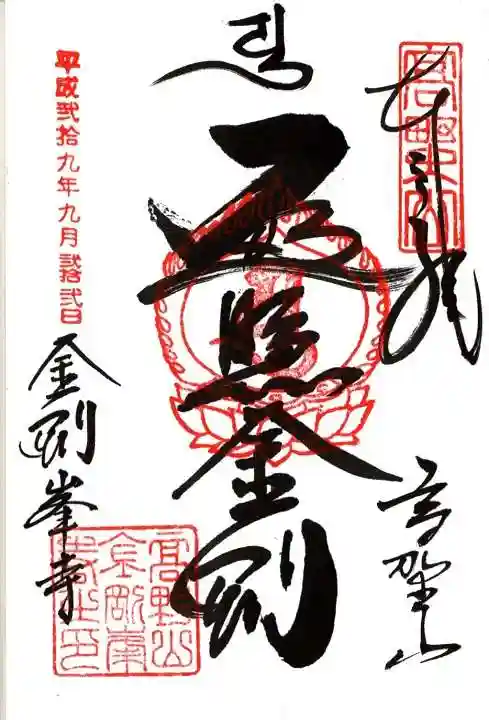 奉拝
高野山
遍照金剛
平成弐拾九年九月弐拾弐日
金剛峯寺
高野山
金剛峯
寺之印